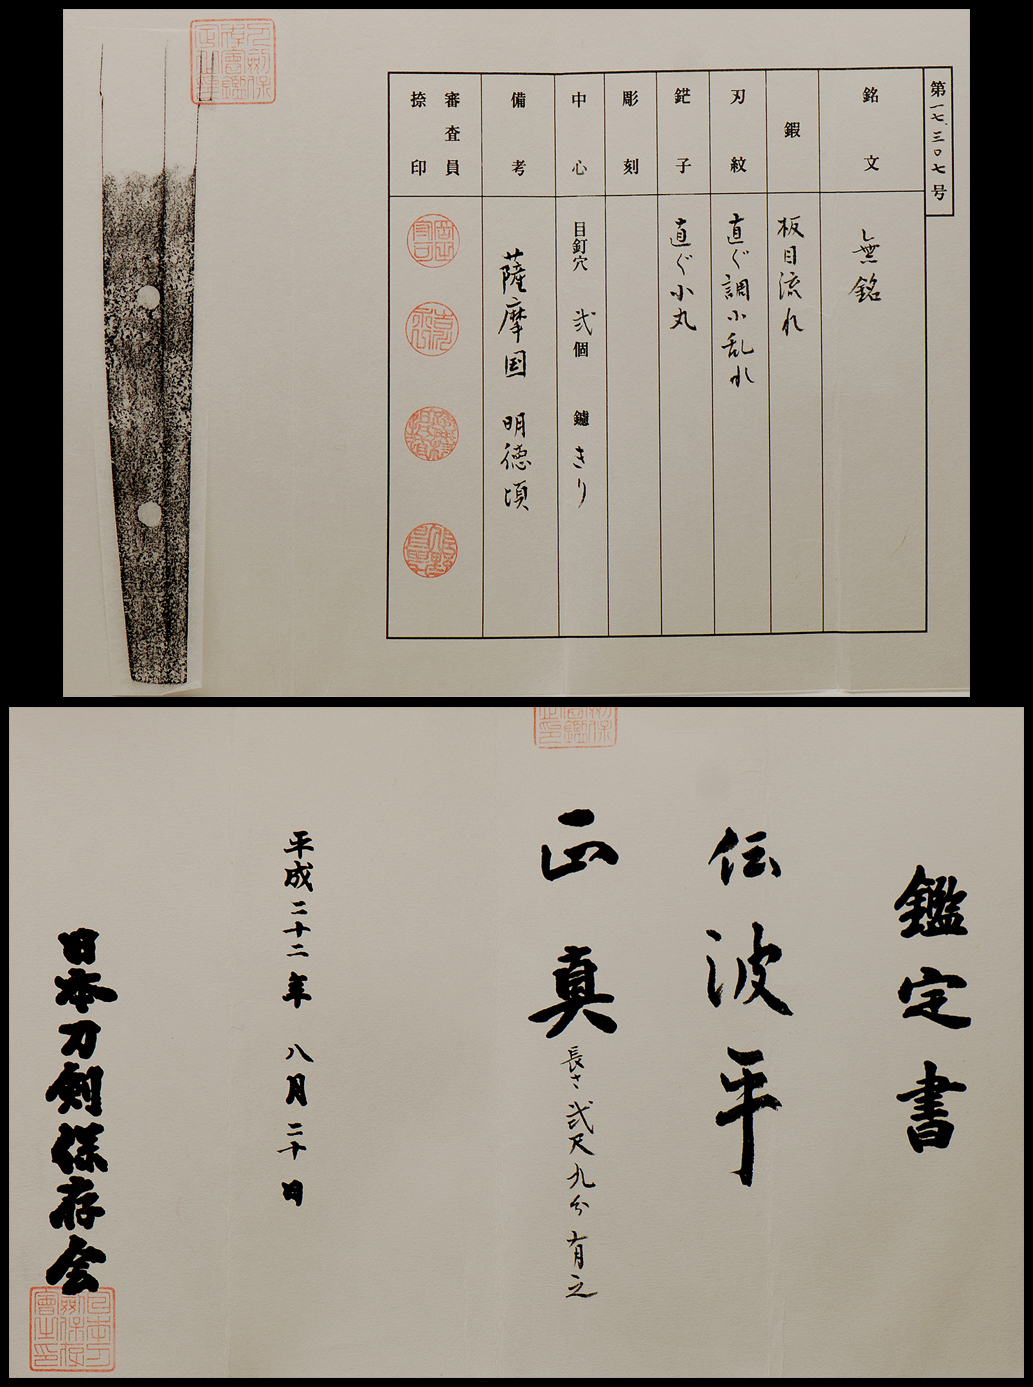 第一七、三〇七号
銘文
無銘
鍜
板目流れ
刃紋
直ぐ調小乱れ
鋩子
直ぐ小丸
彫刻
中心
目釘穴 弐個 鑢 きり
備考
薩摩国 明徳頃
審査員
捺印
鑑定書
伝波平
正真
長さ弐尺九分有之
平成二十二年八月二十日
日本刀剣保存会